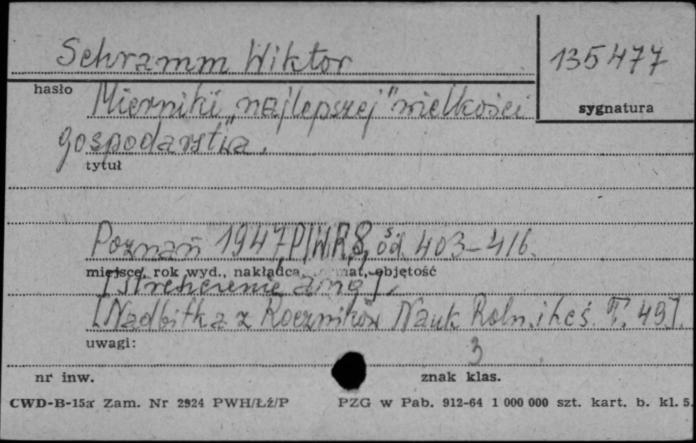 Schramm Wiktor
135477
hasło
sygnatura
Mierniki „najlepszej" wielkości
gospodarstwa.
tytuł
Poznań 1947, PIWR, 8, 403-416.
miejsce, rok wyd., nakładca, objętość
[Streszczenie ang].
[Nadbitka z Roczników Nauk Roln. i Leś. T. 49].
uwagi:
3
nr inw.
znak klas.
CWD-B-15a Zam. Nr 2924 PWH/Łż/P
PZG w Pab. 912-64 1 000 000 szt. kart. b. kl. 5.